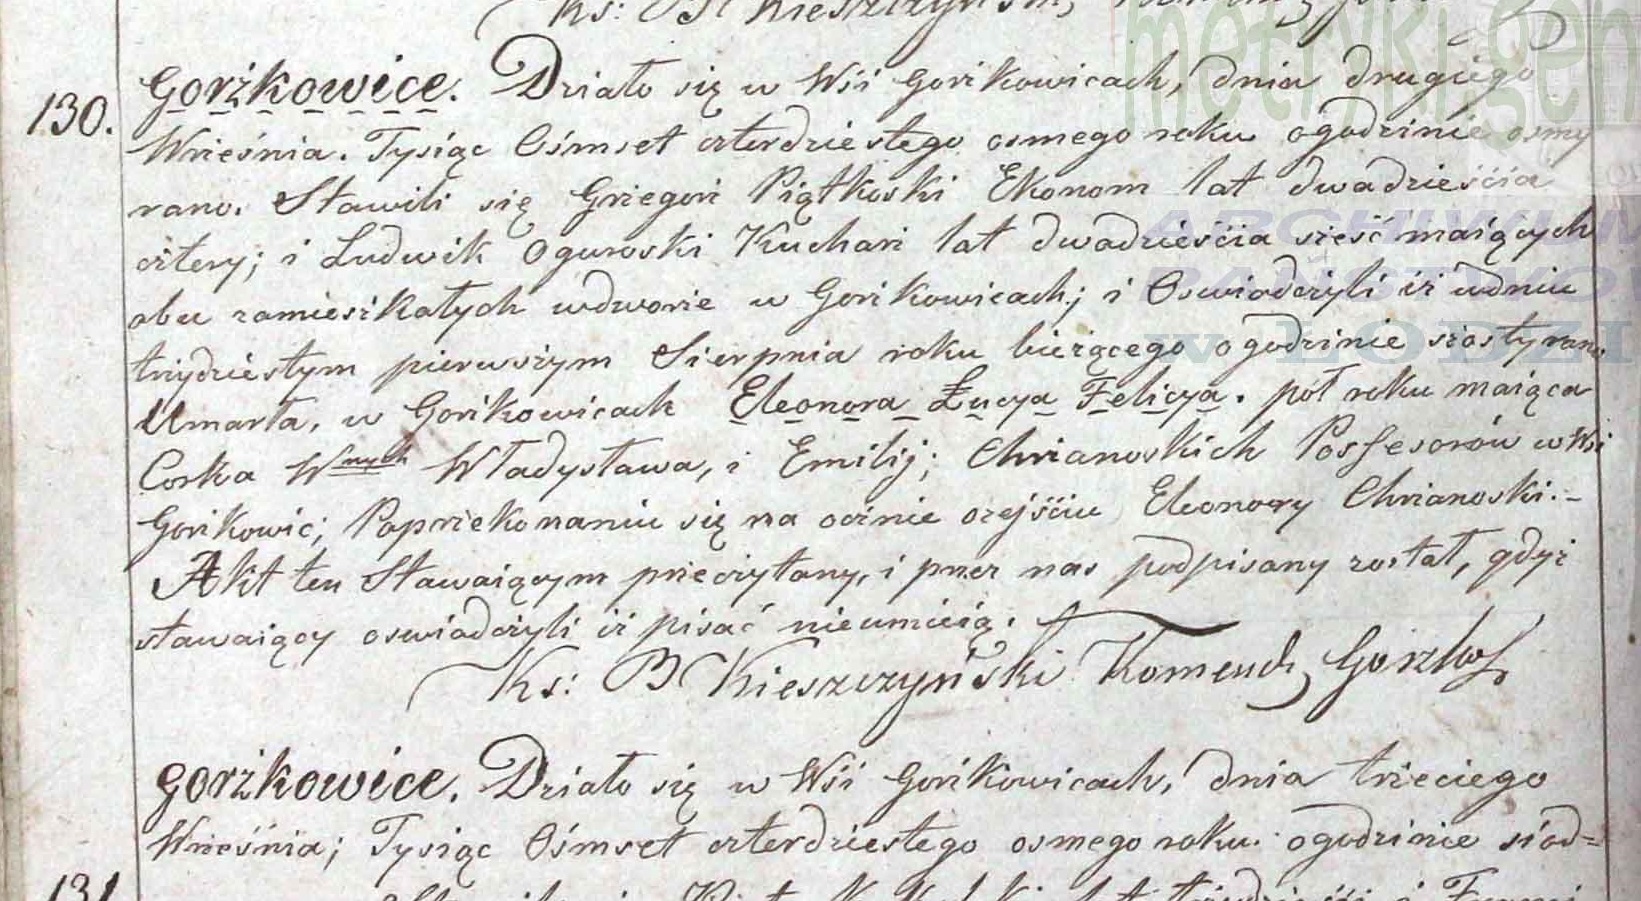 Ks: B Kieszczyński,
130.
Gorżkowice. Działo się w Wśi Gorżkowicach, dnia drugiego
Września. Tysiąc Ośmset czterdziestego osmego roku o godzinie osmy
rano. Stawili się Grzegorz Piątkoski Ekonom lat dwadzieścia
cztery; i Ludwik Oguroski Kucharz lat dwadzieścia sześć maiących
obu zamieszkałych wdworze w Gorżkowicach; i Oswiadczyli iż wdniu
trzydziestym pierwszym Sierpnia roku bieżącego o godzinie szosty rano
Umarła, w Gorżkowicach Eleonora Łucya Felicya. poł roku maiąca
Corka Wnych Władysława, i Emilij; Chrzanoskich Possesorów w Wsi
Gorżkowic; Poprzekonaniu się na ocznie ozejściu Eleonory Chrzanoski.-
Akt ten Stawaiącym przeczytany, i przez nas podpisany został, gdyż
stawaiący oswiadczyli iż pisać nieumieią.
Ks: B Kieszczyński Komend, Gorzkow
Gorżkowice. Działo się w Wśi Gorżkowicach, dnia trzeciego
Września; Tysiąc Ośmset czterdziestego osmego roku. o godzinie siód=
131
metryki.gen
ARCHIWUM
PAŃSTWOW
w ŁODZI